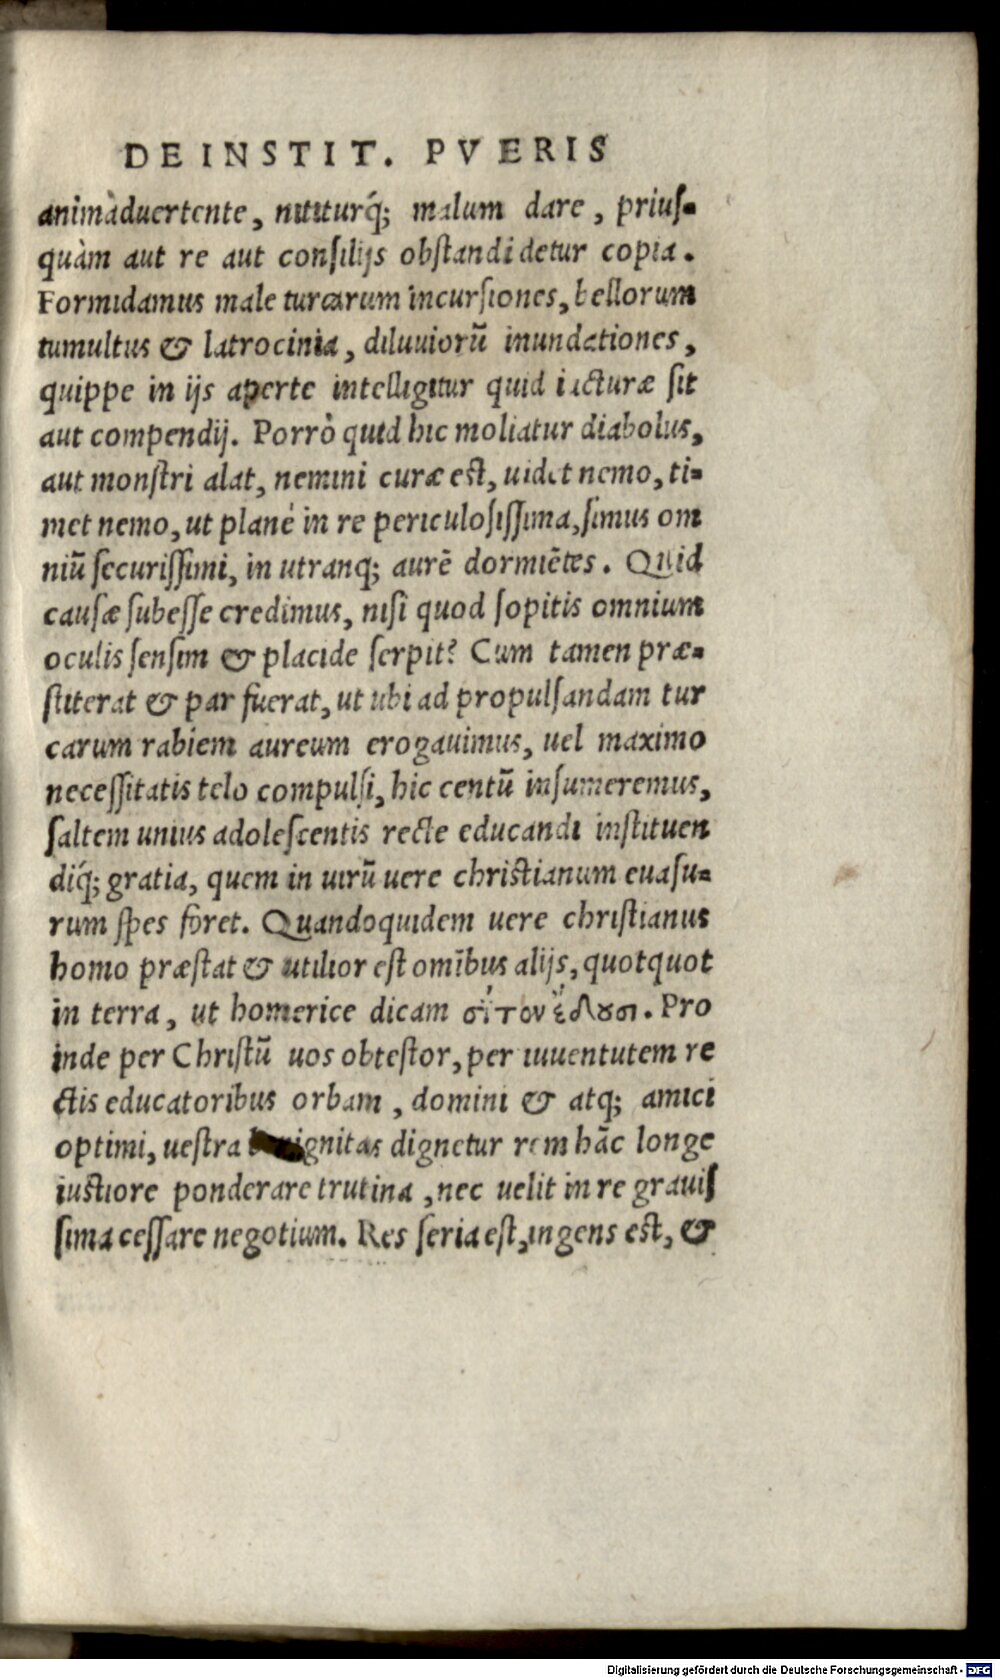 DE INSTIT. PVERIS
animaduertente, nititurq́; malum dare, priusſ-
quàm aut re aut conſilijs obſtandi detur copia.
Formidamus male turcarum incurſiones, bellorum
tumultus & latrocinia, diluuiorū inundationes,
quippe in ijs aperte intelligitur quid iacturæ ſit
aut compendij. Porrò quid hic moliatur diabolus,
aut monſtri alat, nemini curæ eſt, uidet nemo, ti-
met nemo, ut planè in re periculoſiſſima, ſimus om
niū ſecuriſſimi, in utranq; aurē dormiētes. Quid
cauſæ ſubeſſe credimus, niſi quod ſopitis omnium
oculis ſenſim & placide ſerpit? Cum tamen præ-
ſtiterat & par fuerat, ut ubi ad propulſandam tur
carum rabiem aureum erogauimus, uel maximo
neceſſitatis telo compulſi, hic centū inſumeremus,
ſaltem unius adoleſcentis recte educandi inſtituen
diq́; gratia, quem in uirū uere chriſtianum euaſu-
rum ſpes foret. Quandoquidem uere chriſtianus
homo præſtat & utilior eſt omībus alijs, quotquot
in terra, ut homerice dicam σῖτον ἔδουσι. Pro
inde per Chriſtū uos obteſtor, per iuuentutem re
ctis educatoribus orbam, domini & atq; amici
optimi, ueſtra benignitas dignetur rem hāc longe
iuſtiore ponderare trutina, nec uelit in re grauiſ
ſima ceſſare negotium. Res ſeria eſt, ingens eſt, &
Digitalisierung gefördert durch die Deutsche Forschungsgemeinschaft - DFG